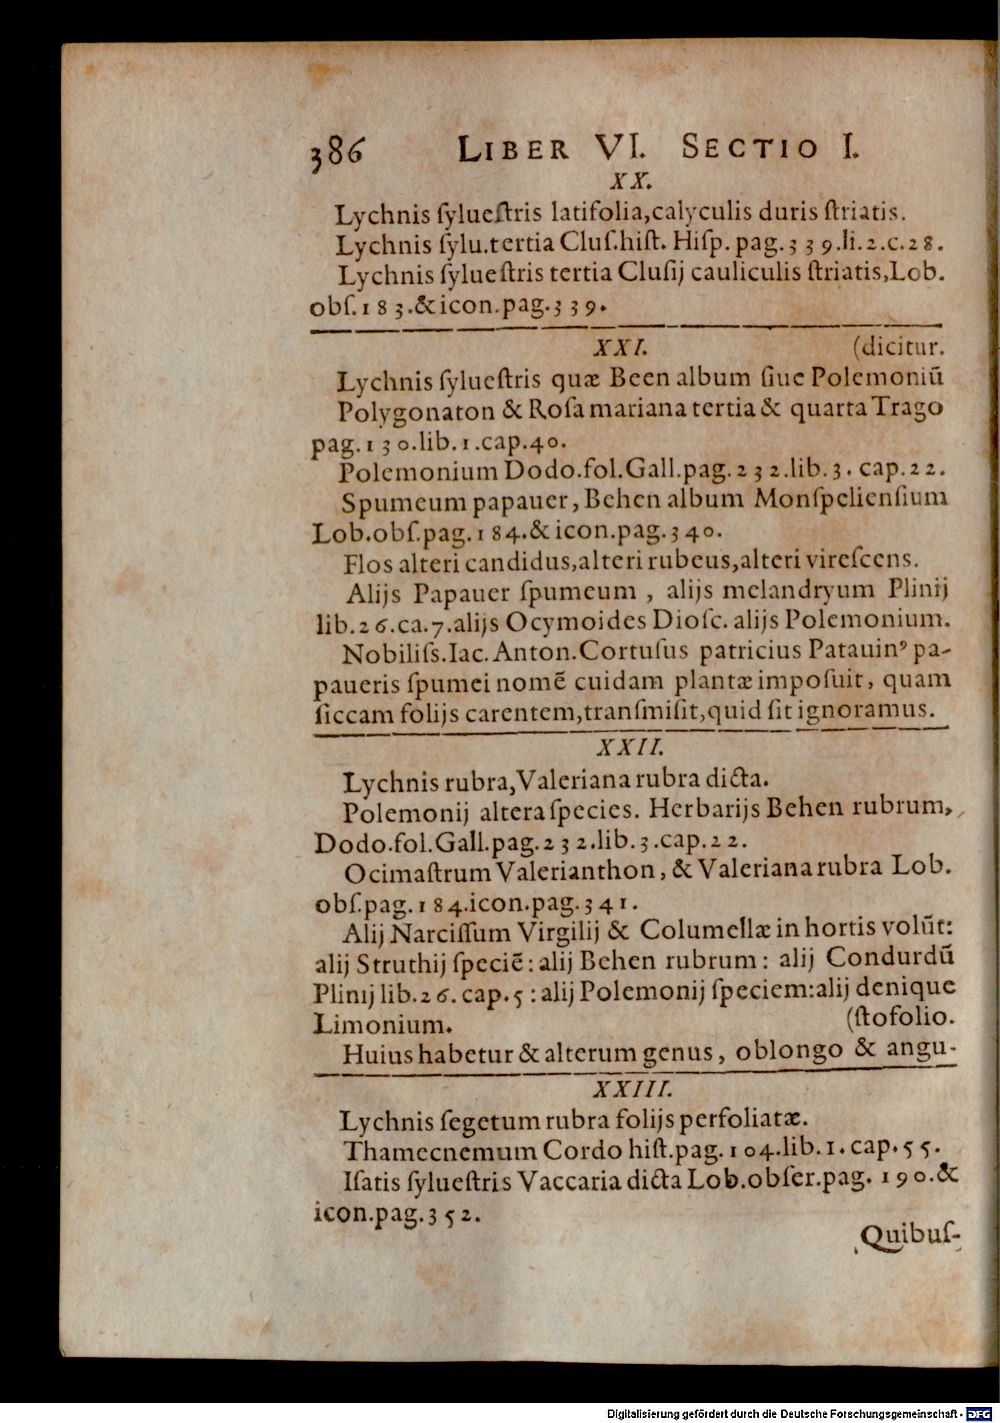 386 LIBER VI. SECTIO I.
XX.
Lychnis ſylueſtris latifolia,calyculis duris ſtriatis.
Lychnis ſylu.tertia Cluſ.hiſt. Hiſp. pag.339.li.2.c.28.
Lychnis ſylueſtris tertia Cluſij cauliculis ſtriatis,Lob.
obſ.183.& icon.pag.339.
XXI. (dicitur.
Lychnis ſylueſtris quæ Been album ſiue Polemoniũ
Polygonaton & Roſa mariana tertia & quarta Trago
pag.130.lib.1.cap.40.
Polemonium Dodo.fol.Gall.pag.232.lib.3. cap.22.
Spumeum papauer, Behen album Monſpelienſium
Lob.obſ.pag.184.& icon.pag.340.
Flos alteri candidus,alteri rubeus,alteri vireſcens.
Alijs Papauer ſpumeum , alijs melandryum Plinij
lib.26.ca.7.alijs Ocymoides Dioſc. alijs Polemonium.
Nobiliſs.Iac.Anton.Cortuſus patricius Patauinꝰ pa-
paueris ſpumei nomẽ cuidam plantæ impoſuit, quam
ſiccam folijs carentem,tranſmiſit,quid ſit ignoramus.
XXII.
Lychnis rubra,Valeriana rubra dicta.
Polemonij altera ſpecies. Herbarijs Behen rubrum,
Dodo.fol.Gall.pag.232.lib.3.cap.22.
Ocimaſtrum Valerianthon, & Valeriana rubra Lob.
obſ.pag.184.icon.pag.341.
Alij Narciſſum Virgilij & Columellæ in hortis volũt:
alij Struthij ſpeciẽ: alij Behen rubrum: alij Condurdũ
Plinij lib.26.cap.5: alij Polemonij ſpeciem:alij denique
Limonium. (ſtofolio.
Huius habetur & alterum genus, oblongo & angu-
XXIII.
Lychnis ſegetum rubra folijs perfoliatæ.
Thamecnemum Cordo hiſt.pag.104.lib.1.cap.55.
Iſatis ſylueſtris Vaccaria dicta Lob.obſer.pag. 190.&
icon.pag.352.
Quibuſ-
Digitalisierung gefördert durch die Deutsche Forschungsgemeinschaft - DFG